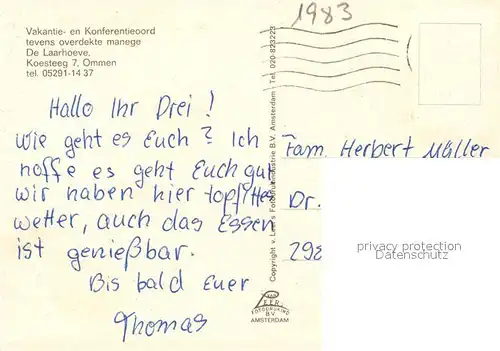 Vakantie- en Konferentieoord
tevens overdekte manege
De Laarhoeve,
Koesteeg 7, Ommen
tel. 05291-1437
1983
Hallo Ihr Drei!
Wie geht es Euch? Ich
hoffe es geht Euch gut
wir haben hier topfittes
Wetter, auch das Essen
ist genießbar.
Bis bald Euer
Thomas
Copyright v. Leer's Fotodrukindustrie B.V. Amsterdam - Tel. 020-823223
Fam. Herbert Müller
Dr.
298
privacy protection
Datenschutz
VAN
LEER
FOTODRUKIND
B.V.
AMSTERDAM